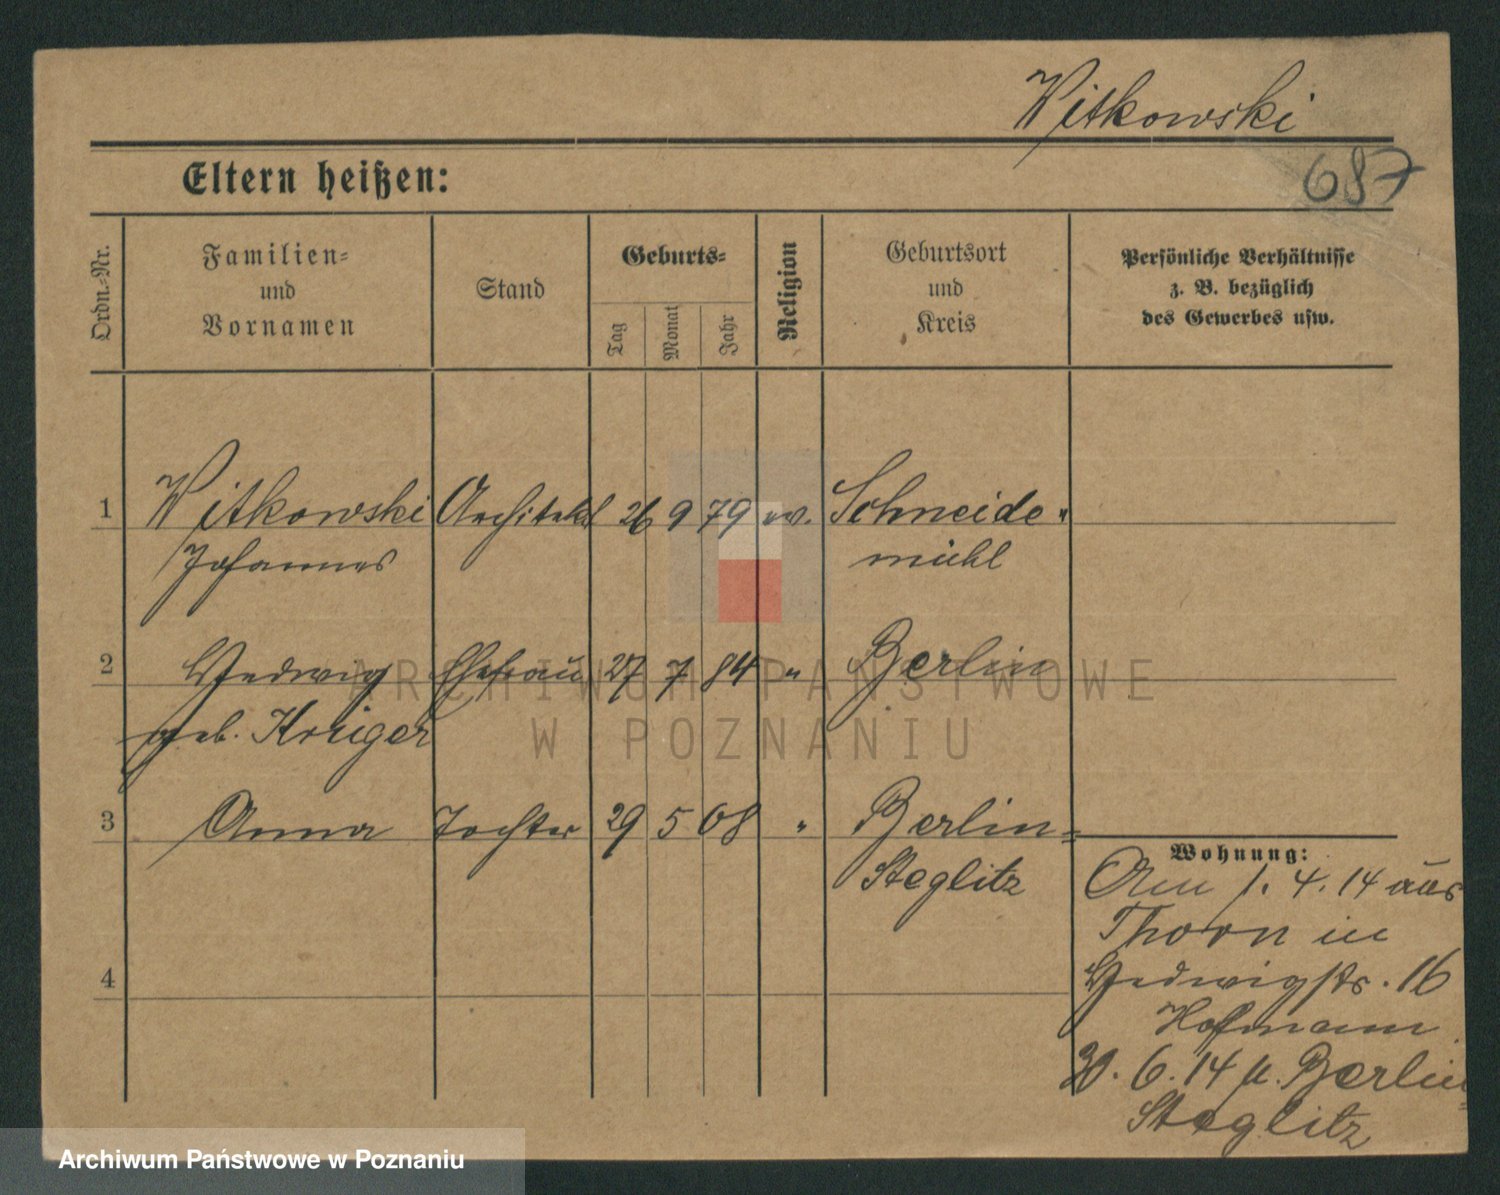 Witkowski
687
Eltern heißen:
Ordn.-Nr.
Familien-
und
Vornamen
Stand
Geburts-
Tag
Monat
Jahr
Religion
Geburtsort
und
Kreis
Persönliche Verhältnisse
z. B. bezüglich
des Gewerbes usw.
1 Witkowski Architekt 26 9 79 ev. Schneide-
Johannes mühl
2 Hedwig Ehefrau 27 7 84 " Berlin
geb. Krüger
3 Anna Tochter 29 5 08 " Berlin-
Steglitz
4
Wohnung:
Am 1. 4. 14 aus
Thorn in
Hedwigstr. 16
Hofmann
30. 6. 14 n. Berlin-
Steglitz
ARCHIWUM PAŃSTWOWE
W POZNANIU
Archiwum Państwowe w Poznaniu